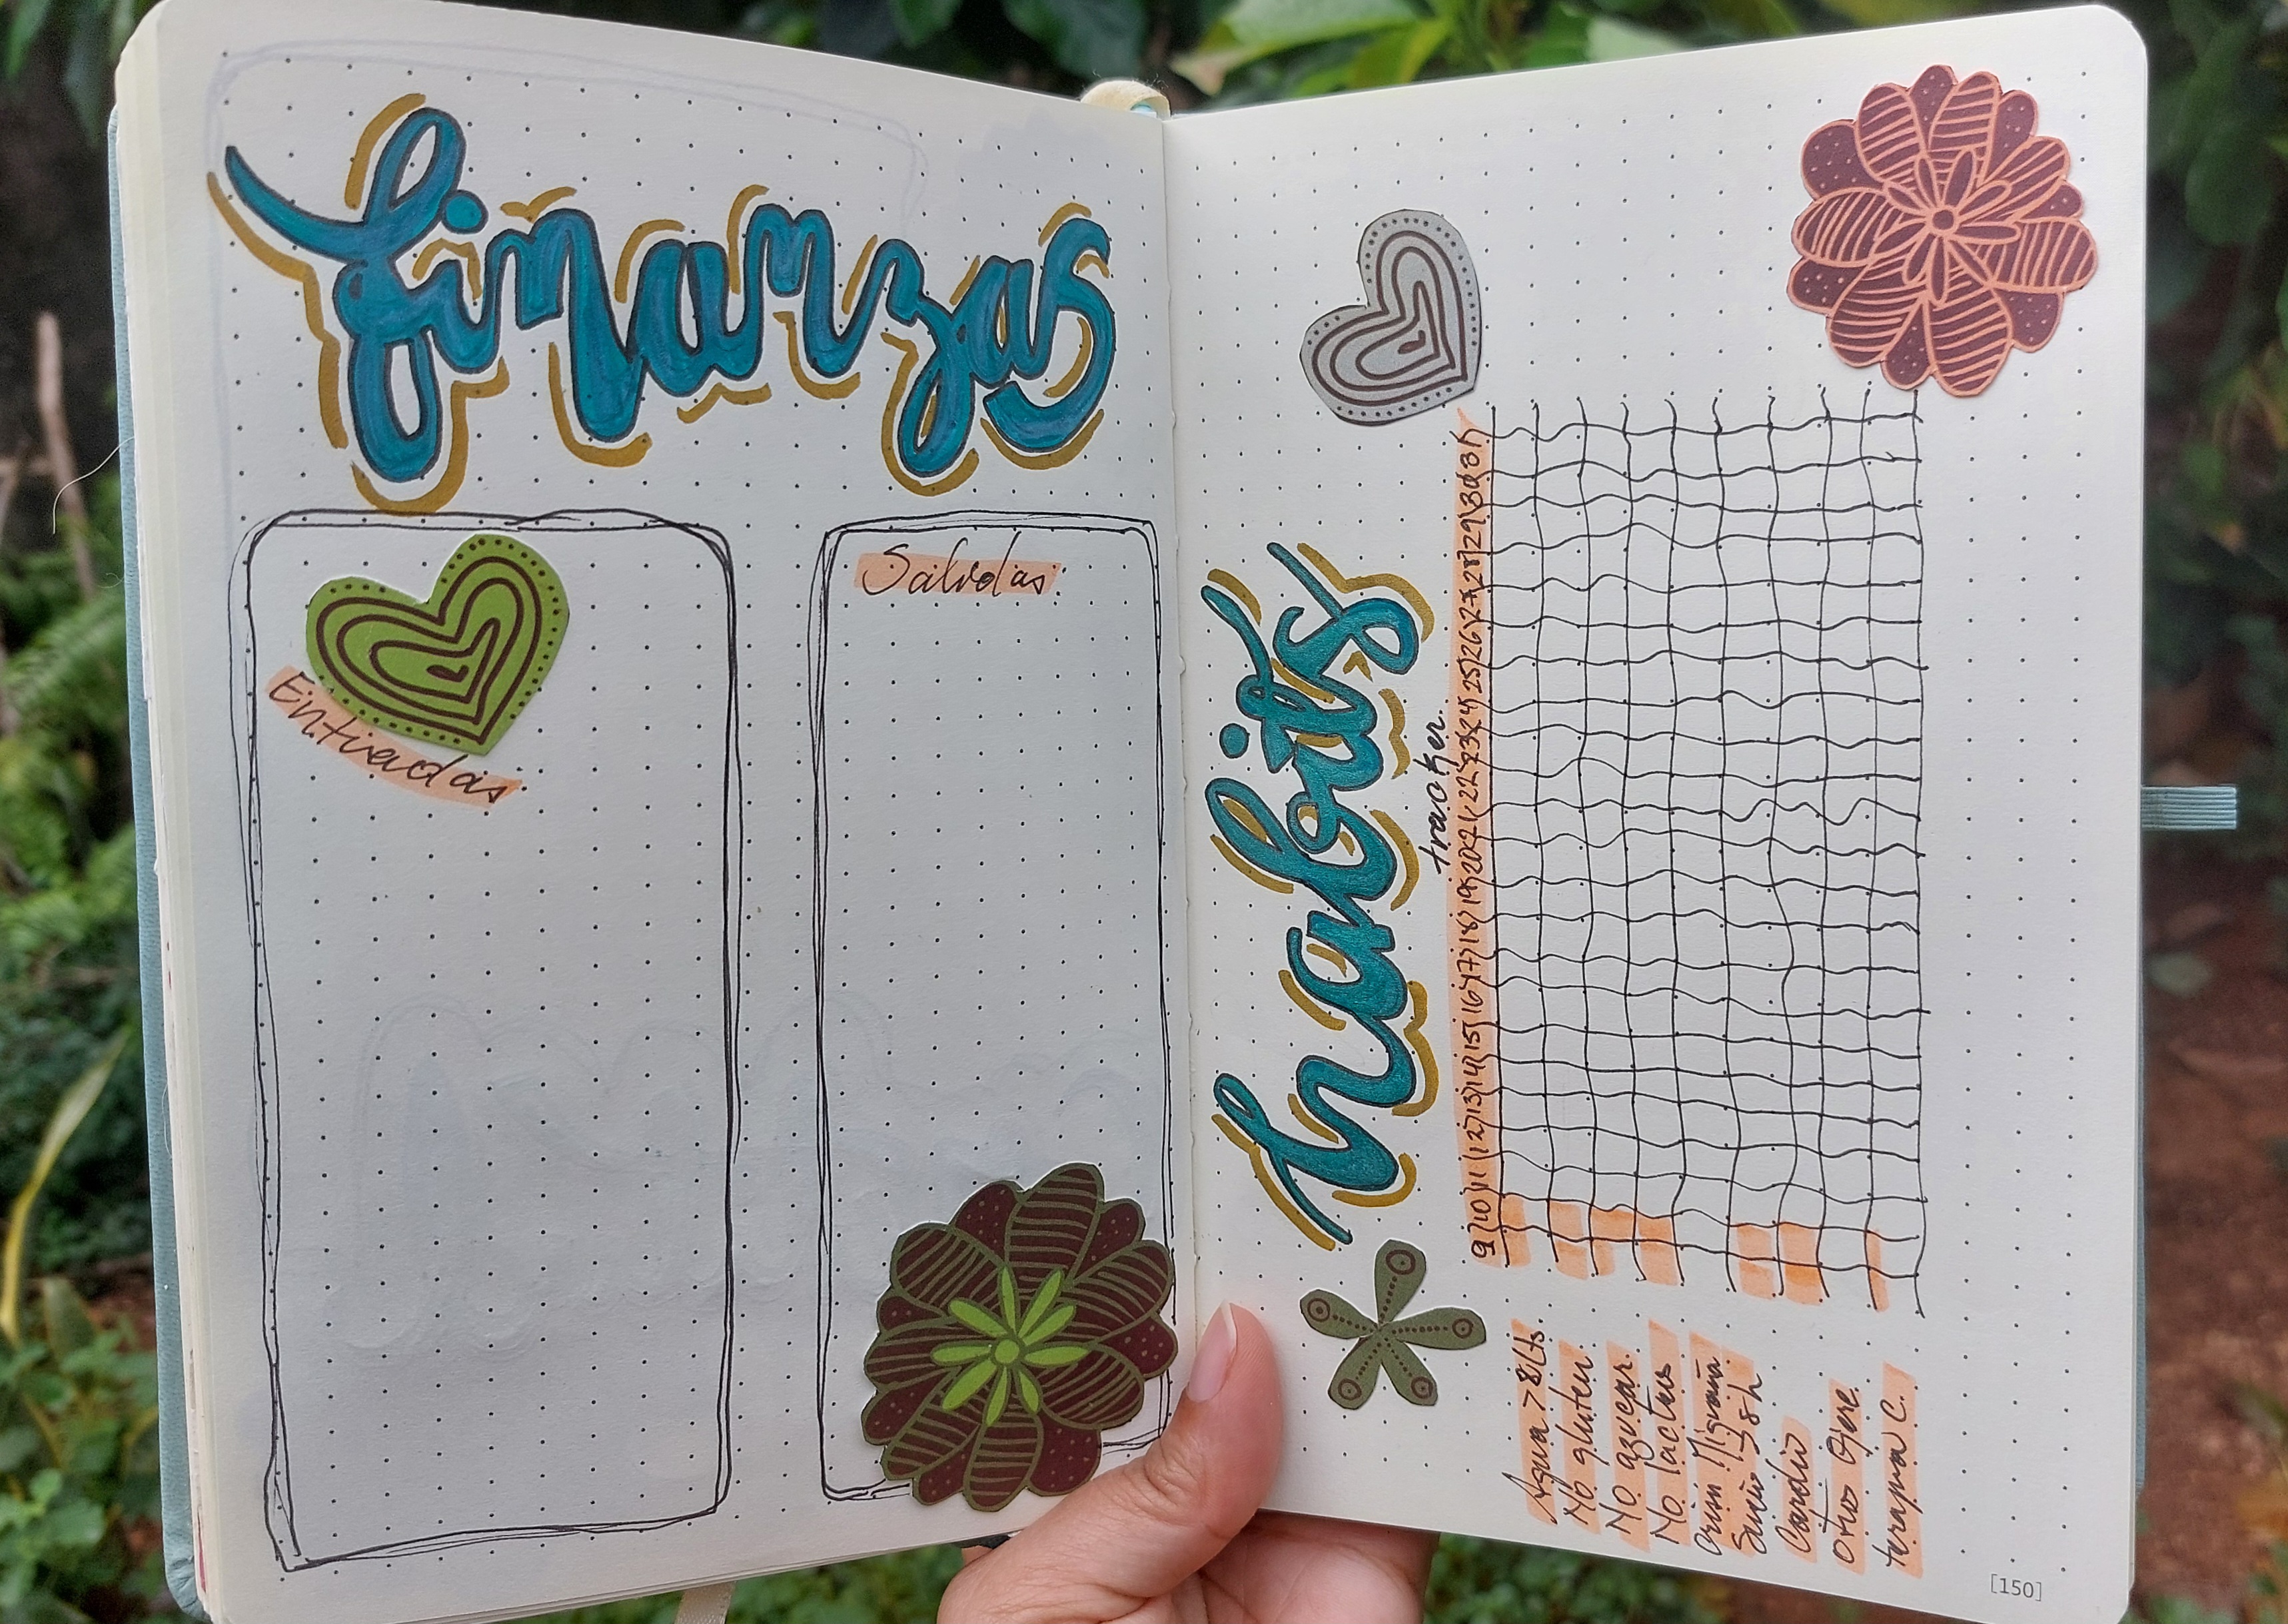 finanzas
Entradas
Salidas
habits
tracker.
9 10 11 12 13 14 15 16 17 18 19 20 21 22 23 24 25 26 27 28 29 30 31
Agua > 8lts.
No gluten.
No azucar.
No lactus
Sueño > 8h
Cardio
Otro Ejerc.
terapia C.
[150]